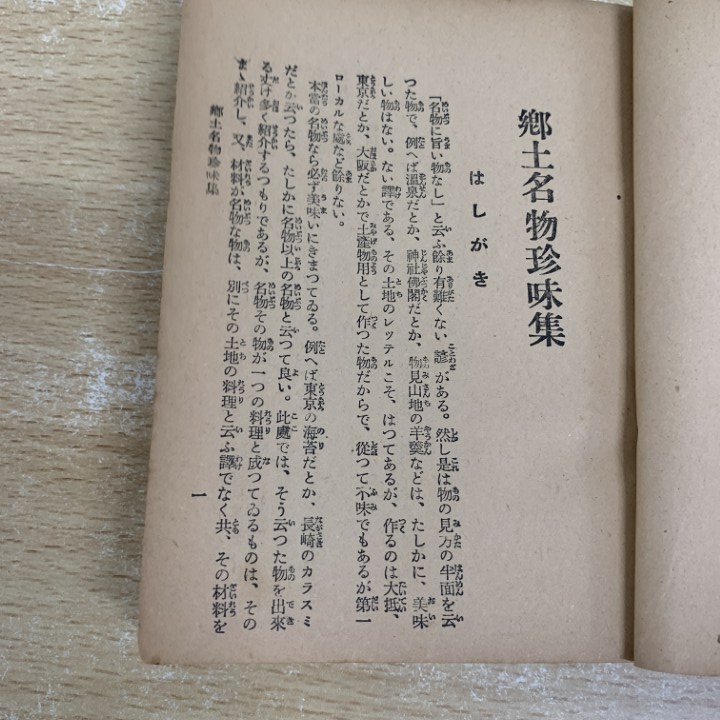 鄕土名物珍味集
はしがき
「名物に旨い物なし」と云ふ餘り有難くない諺がある。然し是は物の見方の半面を云
つた物で、例へば溫泉だとか、神社佛閣だとか、物見山地の羊羹などは、たしかに、美味
しい物はない。ない譯である、その土地のレッテルこそ、はつてあるが、作るのは大抵、
東京だとか、大阪だとかで土產物用として作つた物だからで、從つて不味でもあるが第一
ローカルな處など餘りない。
本當の名物なら必ず美味いにきまつてゐる。例へば東京の海苔だとか、長崎のカラスミ
だとか云つたら、たしかに名物以上の名物と云つて良い。此處では、そう云つた物を出來
る丈け多く紹介するつもりであるが、名物その物が一つの料理と成つてゐるものは、その
まゝ紹介し、又、材料が名物な物は、別にその土地の料理と云ふ譯でなく共、その材料を
鄕土名物珍味集
一